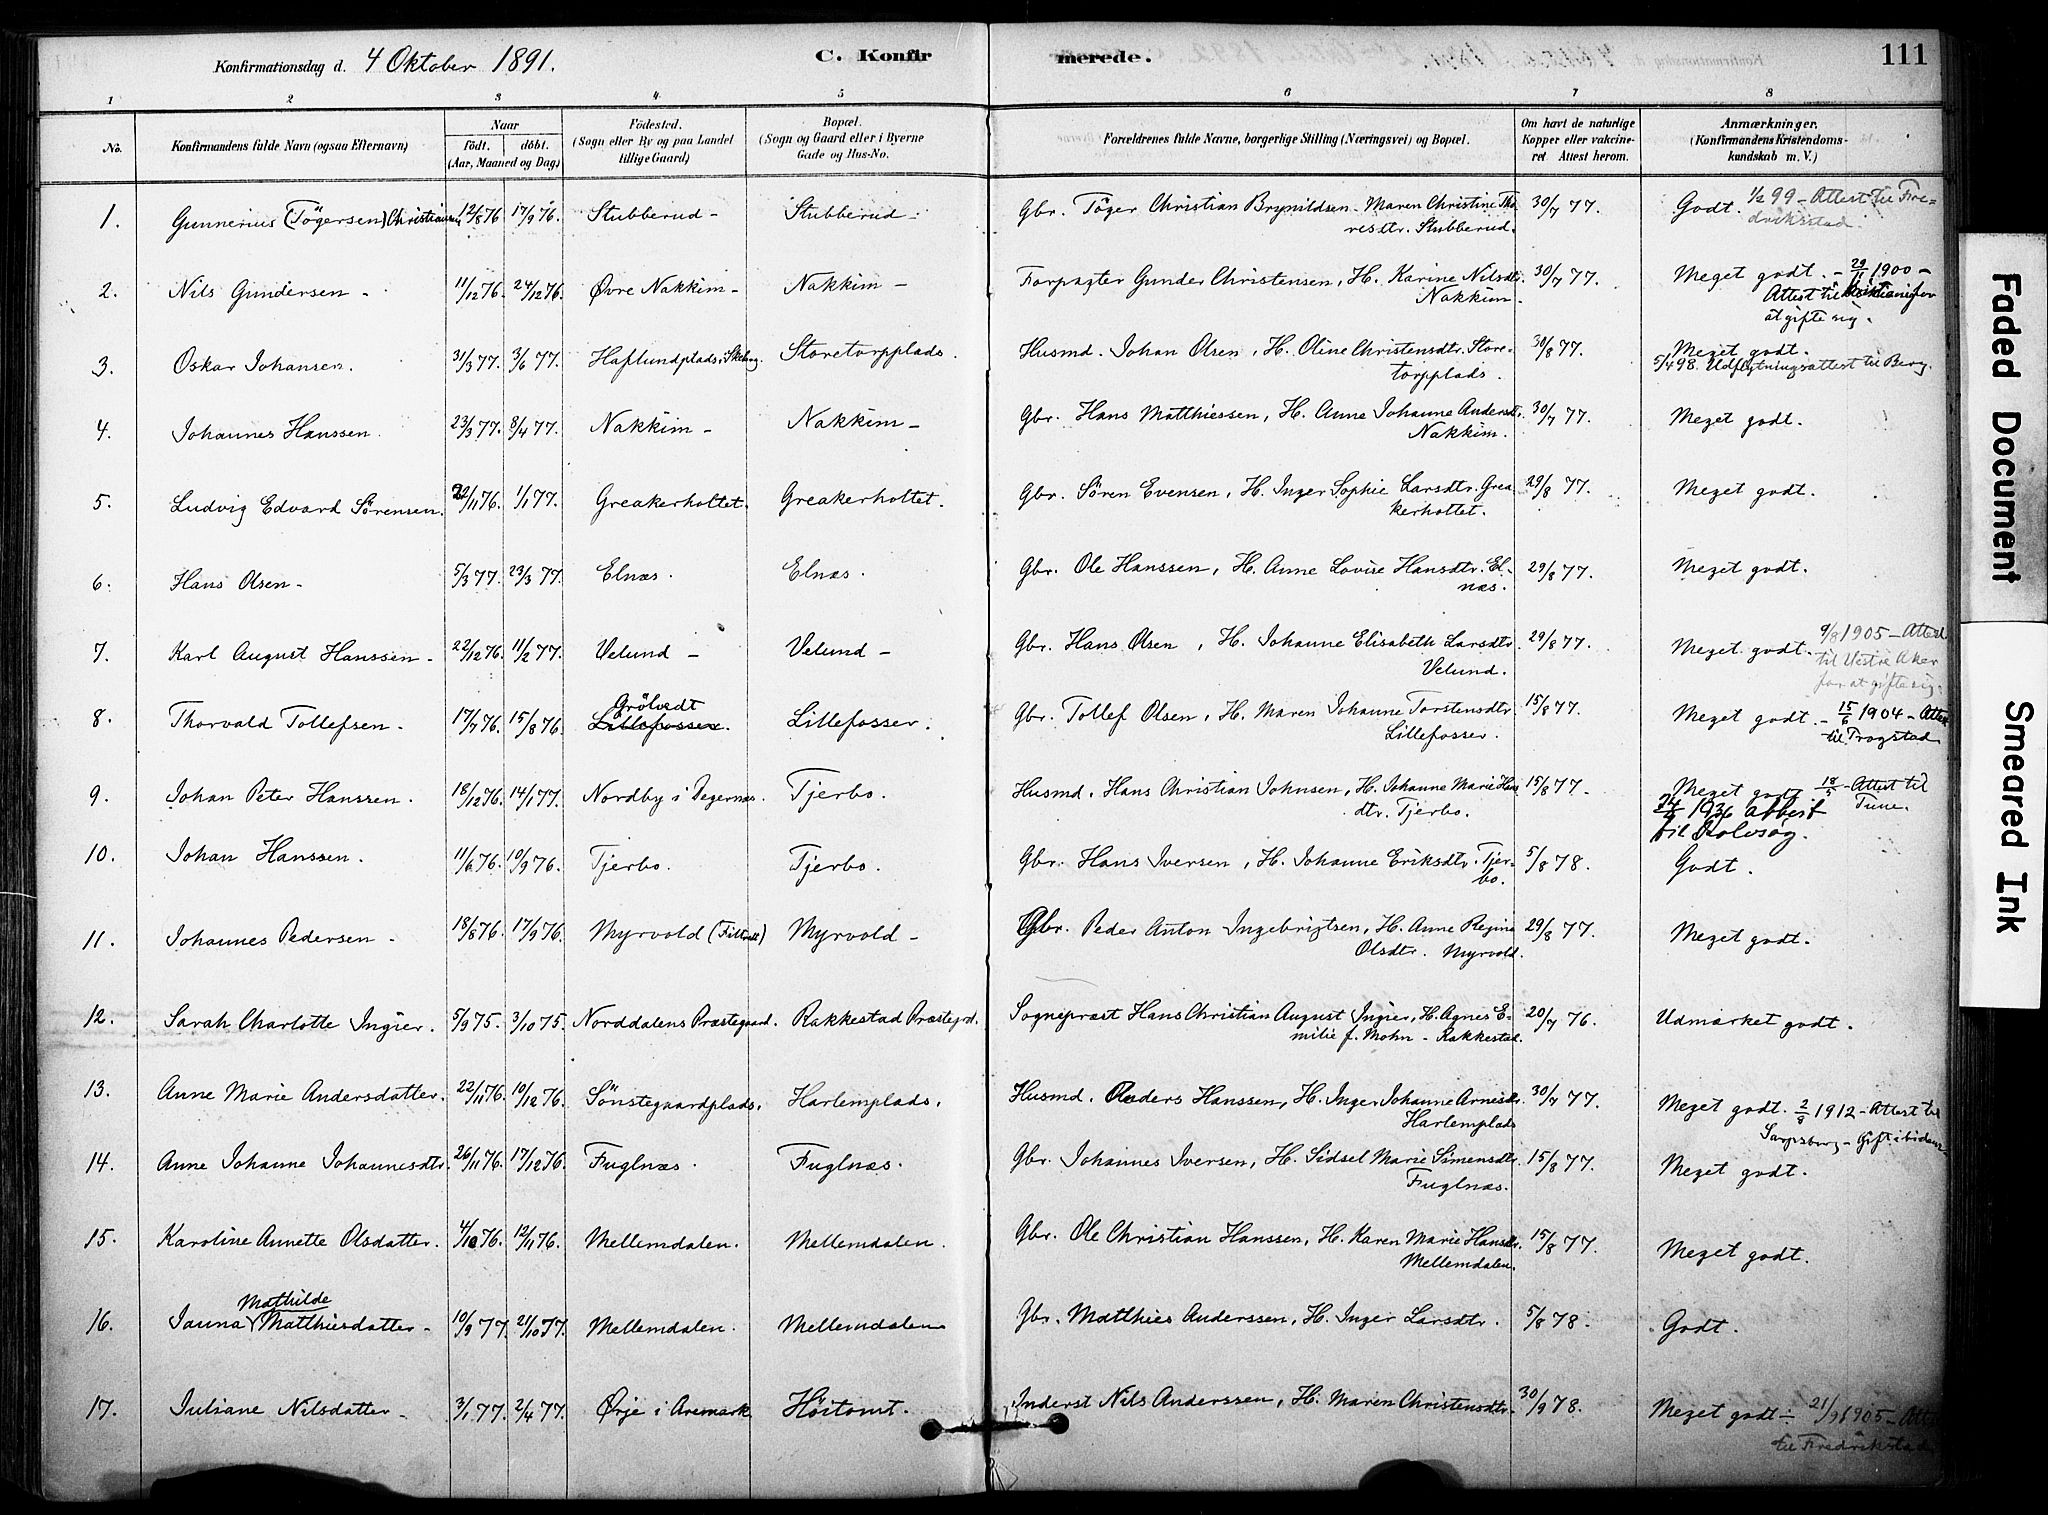 Konfirmationsdag d. 4 Oktober 1891. C. Konfirmerede. 111
1 2 3 4 5 6 7 8
No. Konfirmandens fulde Navn (ogsaa Efternavn) Naar født. døbt. (Aar, Maaned og Dag) Fødested. (Sogn eller By og paa Landet tillige Gaard) Bopæl. (Sogn og Gaard eller i Byerne Gade og Hus-No. Forældrenes fulde Navne, borgerlige Stilling (Næringsvei) og Bopæl. Om havt de naturlige Kopper eller vakcineret Attest herom. Anmærkninger. (Konfirmandens Kristendomskundskab m. V.)
1. Gunnerius (Tögersen) Christiansen 12/8 76 17/9 76. Stubberud - Stubberud - Gbr. Töger Christian Brynildsen. Maren Christine Tho- 30/7 77. Godt. 1/2 99 - Attest til Fre-
resdtr. Stubberud. drikstad.
2. Nils Gundersen - 11/12 76. 24/12 76. Øvre Nakkim - Nakkim - Forpagter Gunder Christensen, H. Karine Nilsdtr. 30/7 77. Meget godt. - 29/11 1900 -
Nakkim - Attest til Kristiania for
at gifte sig.
3. Oskar Johansen. 31/3 77. 3/6 77. Haflundplads i Skeberg. Storetorpplads. Husmd. Johan Olsen, H. Oline Christensdtr. Store- 30/8 77. Meget godt.
torpplads. 5/4 98. Udflytningsattest til Berg.
4. Johannes Hanssen. 23/3 77. 8/4 77. Nakkim - Nakkim - Gbr. Hans Matthiessen, H. Anne Johanne Andersdtr. 30/7 77. Meget godt.
Nakkim.
5. Ludvig Edvard Sörensen. 22/11 76. 1/1 77. Greakerholtet. Greakerholtet. Gbr. Sören Evensen, H. Inger Sophie Larsdtr. Grea- 29/8 77. Meget godt.
kerholtet.
6. Hans Olsen - 5/3 77. 23/3 77. Elnæs. Elnæs. Gbr. Ole Hanssen, H. Anne Lovise Hansdtr. El- 29/8 77. Meget godt.
næs.
7. Karl August Hanssen - 22/12 76. 11/2 77. Velund - Velund - Gbr. Hans Olsen, H. Johanne Elisabeth Larsdtr. 29/8 77. Meget godt. 9/8 1905 - Attest
Velund. til Vestre Aker
for at gifte sig.
8. Thorvald Tollefsen. 17/7 76. 15/8 76. Grölvedt Lillefosser. Lillefosser. Gbr. Tollef Olsen, H. Maren Johanne Torstensdtr. 15/8 77. Meget godt. - 15/6 1904 - Attest
Lillefosser. til Trøgstad
9. Johan Peter Hanssen. 18/12 76. 14/1 77. Nordby i Degernæs. Tjerbo. Husmd. Hans Christian Johnsen, H. Johanne Marie Hans 15/8 77. Meget godt - Attest til
dtr. Tjerbo. Tune.
1936 Attest
til Rolvsøy.
10. Johan Hanssen. 11/6 76. 10/9 76. Tjerbo. Tjerbo. Gbr. Hans Iversen, H. Johanne Eriksdtr. Tjer- 5/8 78. Godt.
bo.
11. Johannes Pedersen - 13/8 76. 17/9 76. Myrvold Myrvold - Gbr. Peder Anton Ingebrigtsen, H. Anne Regine 29/8 77. Meget godt.
Olsdtr. Myrvold.
12. Sarah Charlotte Ingier. 5/9 75. 3/10 75. Norddalens Præstegaard. Rakkestad Præstegrd. Sogneprest Hans Christian August Ingier, H. Agnes E- 20/7 76. Udmærket godt.
milie f. Mohn - Rakkestad.
13. Anne Marie Andersdatter. 22/11 76. 10/12 76. Sönstegaardplads. Harlemplads. Husmd. Anders Hanssen, H. Inger Johanne Arnesdtr. 30/7 77. Meget godt. 2/8 1912 - Attest til
Harlemplads Sarpsborg - Gift ibidem
14. Anne Johanne Johannesdtr. 26/11 76. 17/12 76. Fuglnæs. Fuglnæs. Gbr. Johannes Iversen, H. Sidsel Marie Simensdtr. 15/8 77. Meget godt.
Fuglnæs.
15. Karoline Annette Olsdatter. 4/10 76. 12/11 76. Mellemdalen. Mellemdalen. Gbr. Ole Christian Hanssen, H. Karen Marie Hansdtr. 15/8 77. Meget godt.
Mellemdalen.
16. Janna Mathilde Matthiesdatter - 10/9 77. 21/10 77. Mellemdalen. Mellemdalen Gbr. Matthies Anderssen, H. Inger Larsdtr. 5/8 78. Godt.
17. Juliane Nilsdatter - 3/1 77. 2/4 77. Ørje i Aremark Höitomt. Inderst Nils Anderssen, H. Maren Christensdtr. 30/9 78. Meget godt - 21/9 1905 - Attest
til Fredrikstad
Faded Document
Smeared Ink